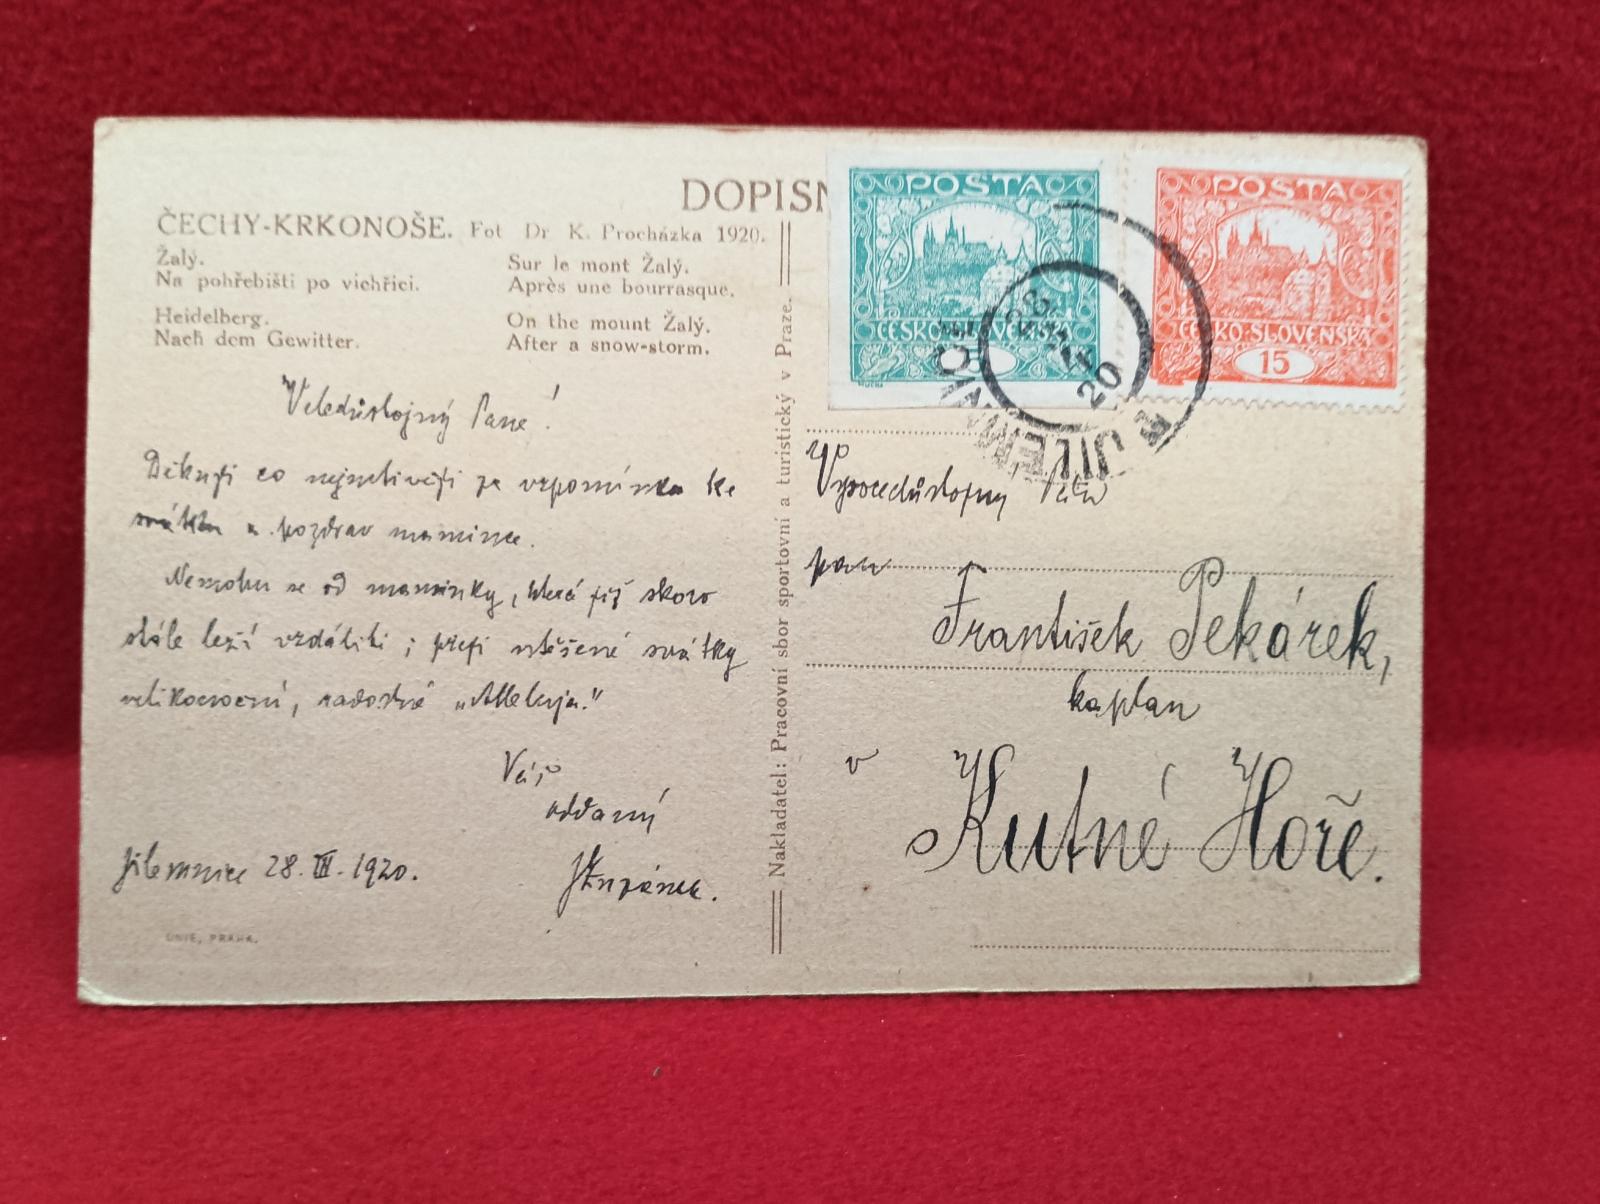 DOPISN
ČECHY-KRKONOŠE. Fot Dr K. Procházka 1920.
Žalý.
Na pohřebišti po vichřici.
Heidelberg.
Nach dem Gewitter.
Sur le mont Žalý.
Après une bourrasque.
On the mount Žalý.
After a snow-storm.
Veledůstojný Pane!
Děkuji co nejsrdečněji za vzpomínku ke
svátku a pozdrav mamince.
Nemohu se od maminky, která již skoro
stále leží vzdáliti; přeji utěšené svátky
velikonoční, radostné „Alleluja."
Váš
oddaný
Jilemnice 28. III. 1920.
UNIE, PRAHA.
Nakladatel: Pracovní sbor sportovní a turistický v Praze.
POSTA
ČESKO-SLOVENSKÁ
MUCHA
POSTA
ČESKO-SLOVENSKÁ
15
JILEMNICE
28
20
Vysocedůstojný
pan
František Pekárek,
kaplan
v
Kutné Hoře.